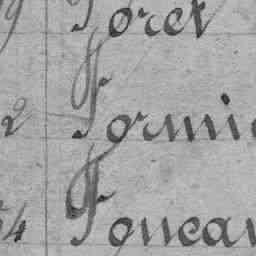 9 Foret
2 Formi
4 Foucau